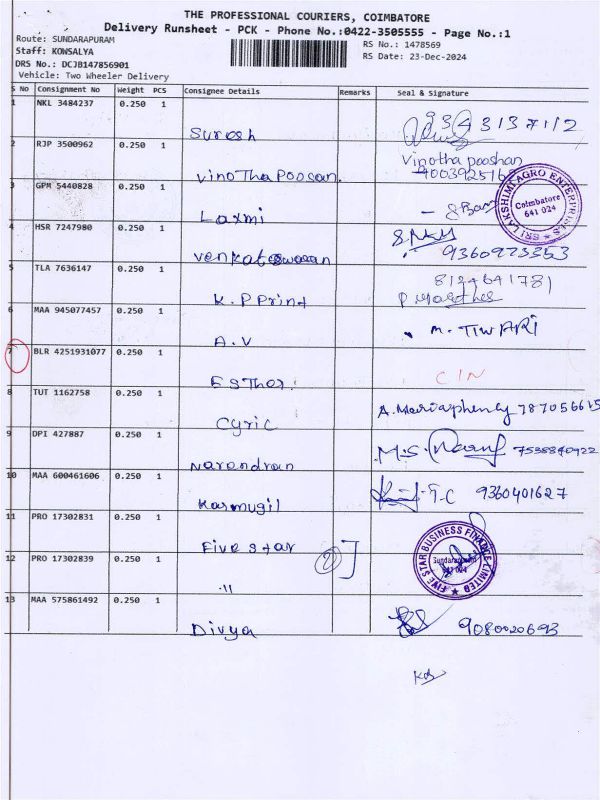 THE PROFESSIONAL COURIERS, COIMBATORE
Delivery Runsheet - PCK - Phone No.:0422-3505555 - Page No.:1
Route: SUNDARAPURAM
Staff: KOWSALYA
DRS No.: DCJB147856901
Vehicle: Two Wheeler Delivery
RS No.: 1478569
RS Date: 23-Dec-2024
S No Consignment No Weight PCS Consignee Details Remarks Seal & Signature
1 NKL 3484237 0.250 1 Suresh 9343137112
2 RJP 3500962 0.250 1 VinoThaPoosan. Vinotha pooshan
3 GPM 5440828 0.250 1 Laxmi
SRI LAKSHMI AGRO ENTERPRISES
Coimbatore
641 024
4 HSR 7247980 0.250 1 Venkateswaran 9360923353
5 TLA 7636147 0.250 1 K.P Print 8124641781
6 MAA 945077457 0.250 1 A.V M. TIWARI
7 BLR 4251931077 0.250 1 Esther. CIN
8 TUT 1162758 0.250 1 Cyric
9 DPI 427887 0.250 1 Narandran M.S. 7538840922
10 MAA 600461606 0.250 1 Karmugil 9360401627
11 PRO 17302831 0.250 1 Five star
12 PRO 17302839 0.250 1 .11 2
FIVE STAR BUSINESS FINANCE LIMITED
Sundarapuram
641 024
13 MAA 575861492 0.250 1 Divya 9080020693